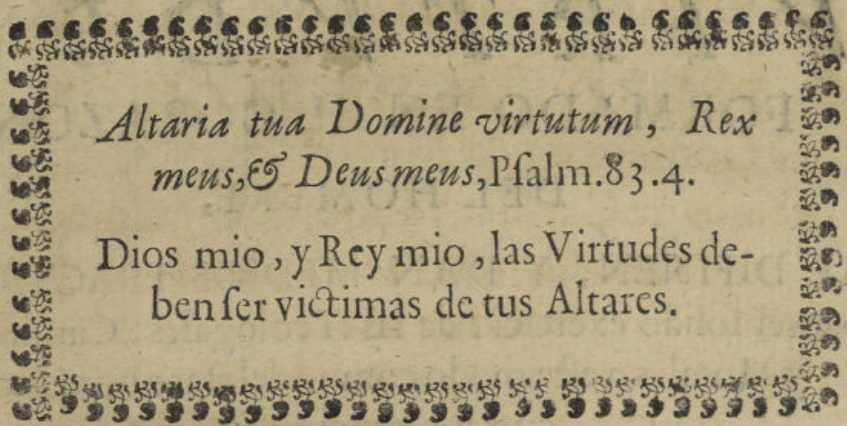 Altaria tua Domine virtutum, Rex
meus, & Deus meus, Pſalm.83.4.
Dios mio, y Rey mio, las Virtudes de-
ben ſer victimas de tus Altares.